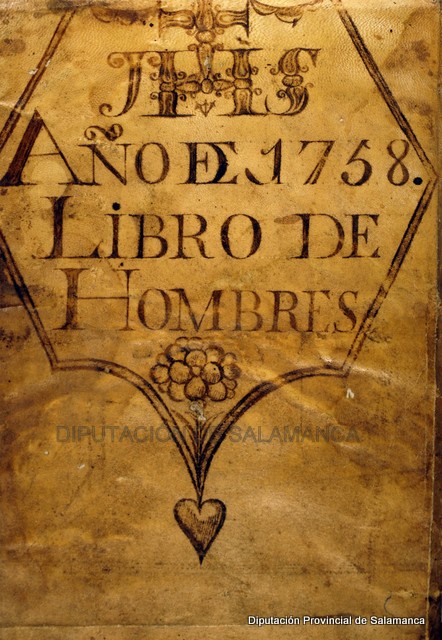 JHS
AÑO DE 1758.
LIBRO DE
HOMBRES
DIPUTACIÓN DE SALAMANCA
Diputación Provincial de Salamanca